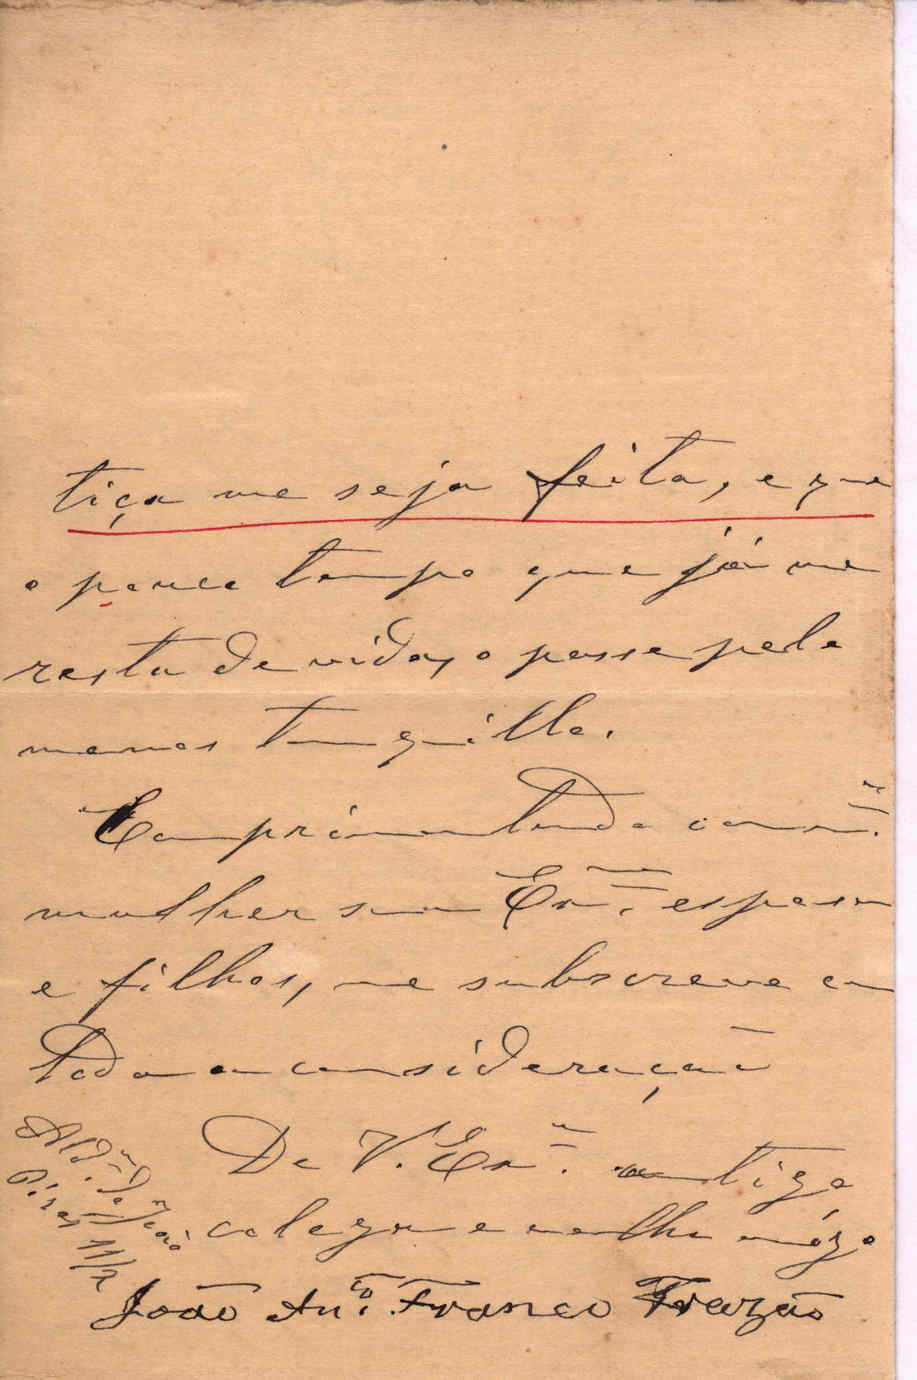 tiça me seja feita, e que
o pouco tempo que já me
resta de vida, o passe pelo
menos tranquillo.
Comprimentando com m.ª
mulher sua Ex.ma esposa
e filhos, me subscreve com
toda a consideração
De V. Ex.ª antigo
collega e velho amigo
João Ant.º Franco Frazão
Ald.ª de João
Pires 11/2